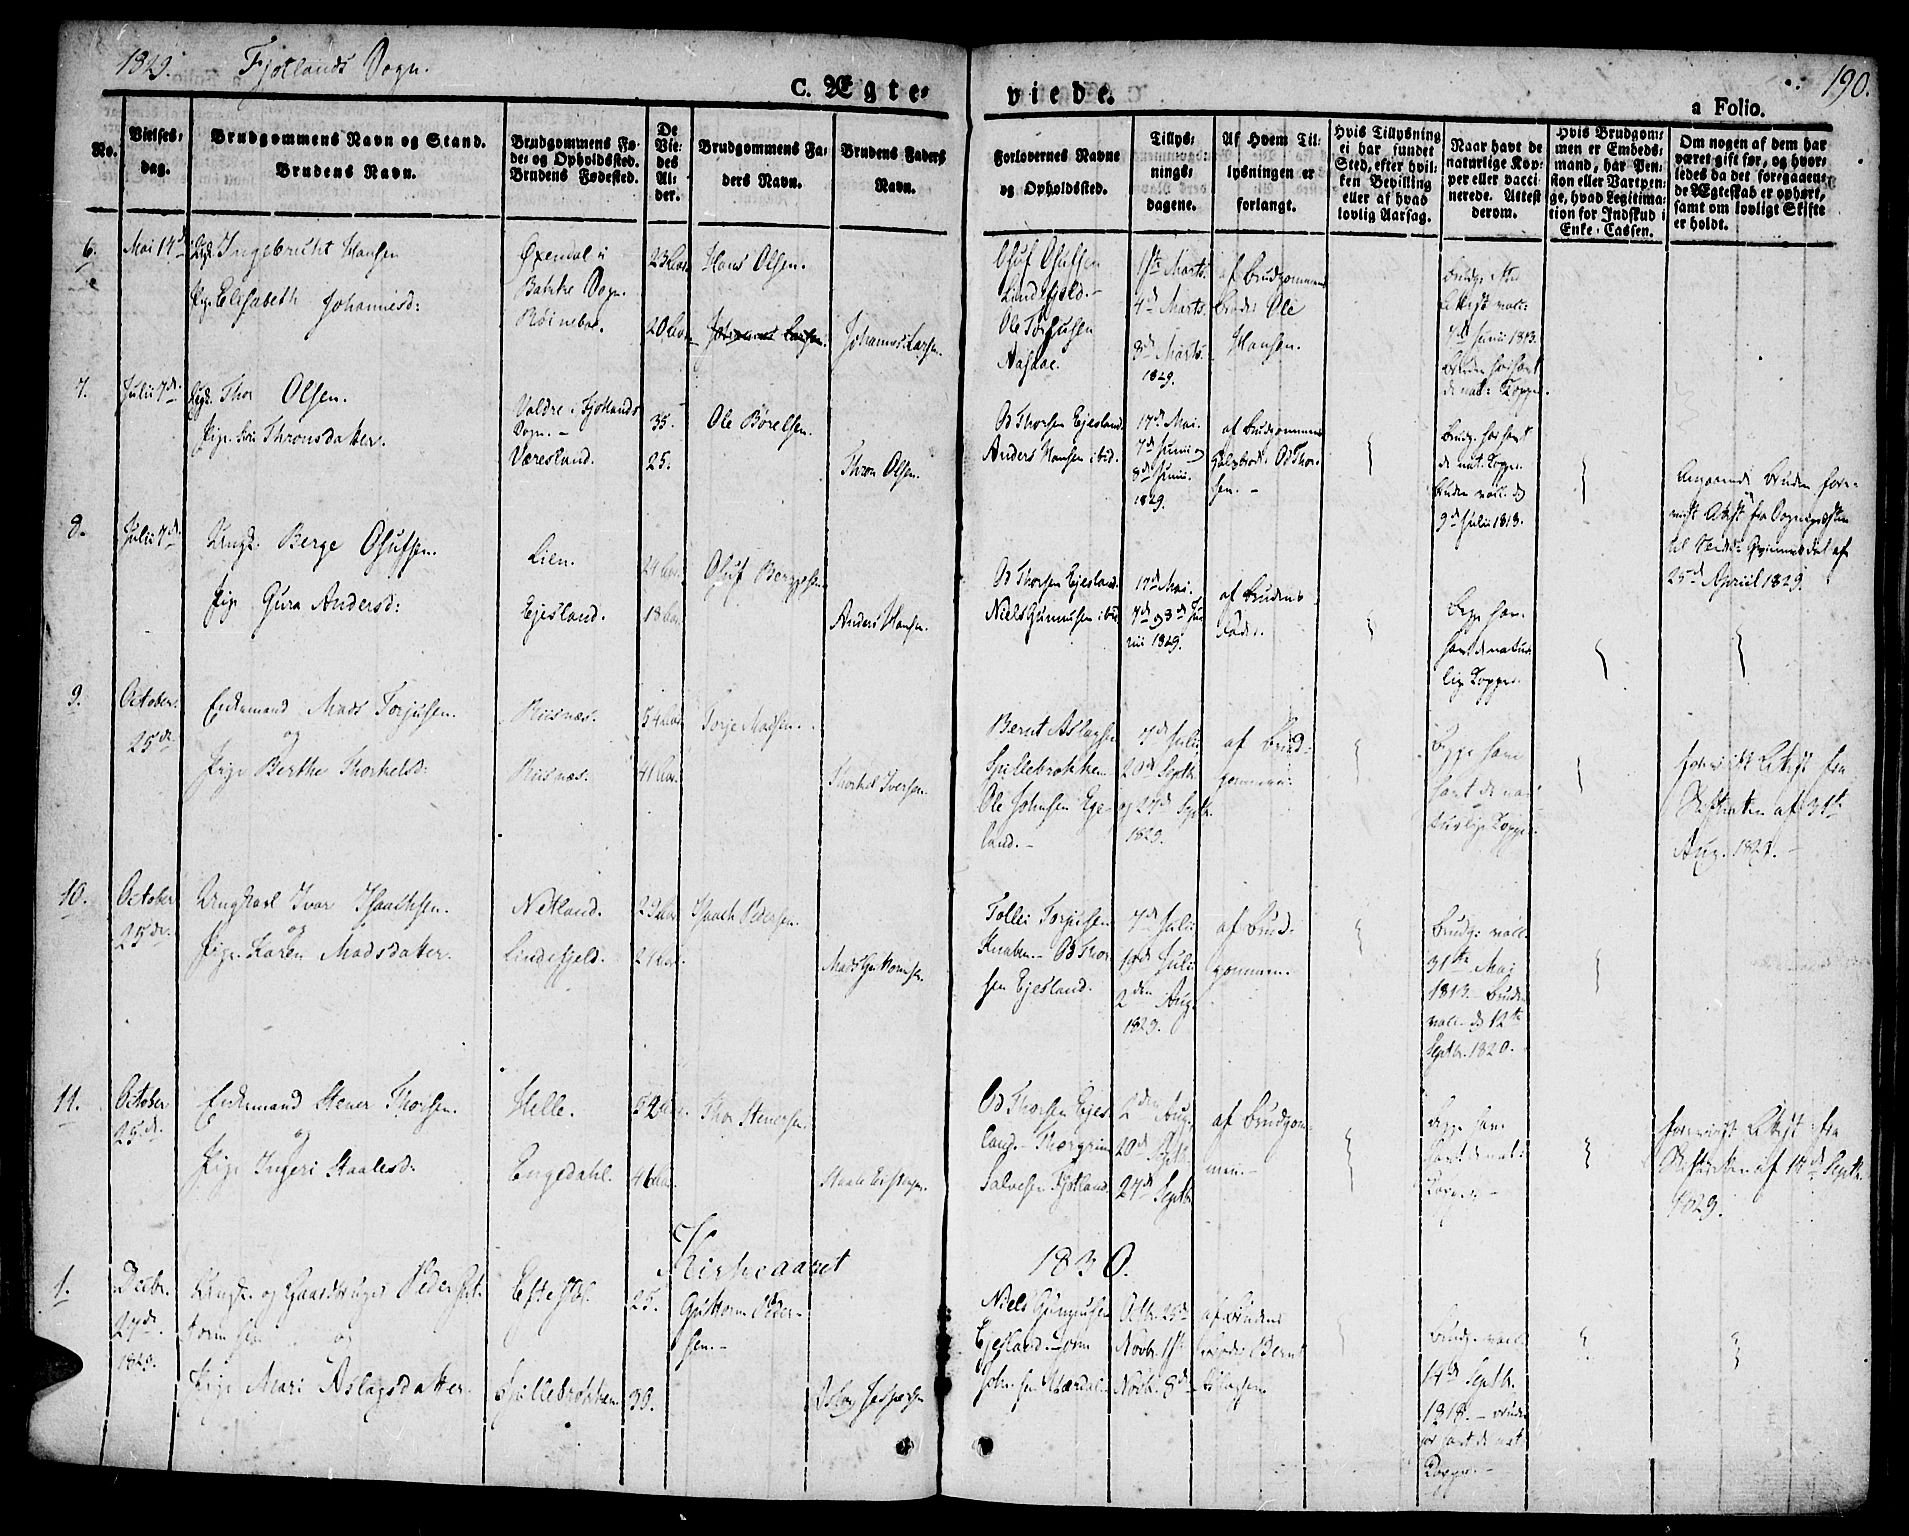 1829. Fjotlands Sogn.
190.
C. Ægte-
viede.
a Folio.
No.
Vielses-
dag.
Brudgommens Navn og Stand.
Brudens Navn.
Brudgommens Fø-
de- og Opholdssted.
Brudens Fødested.
De
Vie-
des
Al-
der.
Brudgommens Fa-
ders Navn.
Brudens Faders
Navn.
Forlovernes Navne
og Opholdssted.
Tillys-
nings-
dagene.
Af Hvem Til-
lysningen er
forlangt.
Hvis Tillysning
ei har fundet
Sted, efter hvil-
ken Bevilling
eller af hvad
lovlig Aarsag.
Naar havt de
naturlige Kop-
per eller vacci-
nerede. Attest
derom.
Hvis Brudgom-
men er Embeds-
mand, har Pen-
sion eller Vartpen-
ge, hvad Legitima-
tion for Indskud i
Enke-Cassen.
Om nogen af dem har
været gift før, og hvor-
ledes da det foregaaen-
de Ægteskab er ophørt,
samt om lovligt Skifte
er holdt.
6.
Mai 14d
Ingebricht Hansen
Pige Elisabeth Johannesd:
Øxendal i
Bakke Sogn.
Röineboe.
23 Aar
20 Aar
Hans Olsen.
Johannes Larsen.
Johannes Larsen.
Oluf Olufsen
Lindefjeld.-
Ole Torjusen
1ste Marts.
4de Marts.
8de Marts.
1829.
af Brudgommens
Broder Ole
Hansen.
Brudg: 
7de Junii 1813.
Bruden har havt
de nat: Kopper.
7.
Julii 7de.
Thor Olsen.
Pige Thronsdatter.
Valdre i Fjotlands
Sogn.-
Væresland.
35.
25.
Ole Börelsen.
Thron Olsen.
Od Thorsen Ejesland.
Anders Hansen ibid.
17de Mai.
7de Junii og
8de Junii.
1829.
af Brudgommens
Od Thor-
sen.-
Brudg. har havt
de nat. Kopper.
Bruden vacc. d
9de Julii 1813.
Angaaende Bruden fore-
viist Attest fra Sognepræsten
til Qvinnesdal af
25de April 1829.
8.
Julii 7de
Ungk. Berge Olufsen.
Pige Gura Andersd:
Lien.
Ejesland.
24 Aar.
18 Aar.
Oluf Bergesen
Anders Hansen.
Od Thorsen Ejesland.
Niels Gunnusen ibid
17de Mai,
7de og 8de Ju-
nii 1829.
af Brudens
Fader.
Begge have
havt de natur-
lige Kopper.
9.
October
25de
Enkemand Mads Torjusen.
og
Pige Berthe Thorkelsd:
Risnæs.
Risnæs.
54 Aar
41 Aar.
Torje Madsen.
Thorkel Iversen.
Bernt Aslagsen
Spillebrokken
Ole Johnsen Ege-
land.-
7de Julii
20de Septb.
og 27de Septb.
1829.
af Brud-
gommen.
Begge have
havt de na-
turlige Kopper.
foreviist Attest fra
Skifteretten af 31te
Aug. 1829.-
10.
October
25de.
Ungkarl Ivar Isaachsen.
og
Pige Karen Madsdatter.
Netland.
Lindefjeld.
29 Aar
21 Aar.
Isaach Pedersen.
Mads Guttormsen.
Tollei Torjusen
Knaben - Od Thor-
sen Ejesland.
7de Juli
2den Aug.
1829.
af Brud-
gommen.
Brudg: vacc.
31te Mai
1813.- Bruden
vacc. d 12te
Septbr. 1820.-
11.
October
25de.
Enkemand Stener Thorsen.
og
Pige Ingeri Staalesd:
Helle.
Engedahl.
52 Aar.
46 Aar.
Thor Stenersen.
Od Thorsen Ejes-
land.- Thorgrim
Salvesen Fjotland
2den Aug.
20de Septb.
27de Septbr
af Brudgom-
men.-
Begge have
havt de nat:
Kopper.-
foreviist Attest fra
Skifteretten af Septb.
1829.
Kirkeaaret 1830.
1.
Decbr.
27de.
1829.
Ungk. og Gaardbruger Peder Gut-
tormsen og
Pige Mari Aslagsdatter.
Eftestöl.
Spillebrokken
25.
30.
Guttorm Peder-
sen.-
Aslag Jespersen
Niels Gunnusen
Ejesland.- Tom
Johnsen Qværdal.
Octbr. 25de
Novbr. 1ste
Novbr. 8de
af Brudens
Broder Bernt
Aslagsen.
Brudg. vacc.
14de Septb.
1818.- Bruden
har havt de nat.
Kopper.-